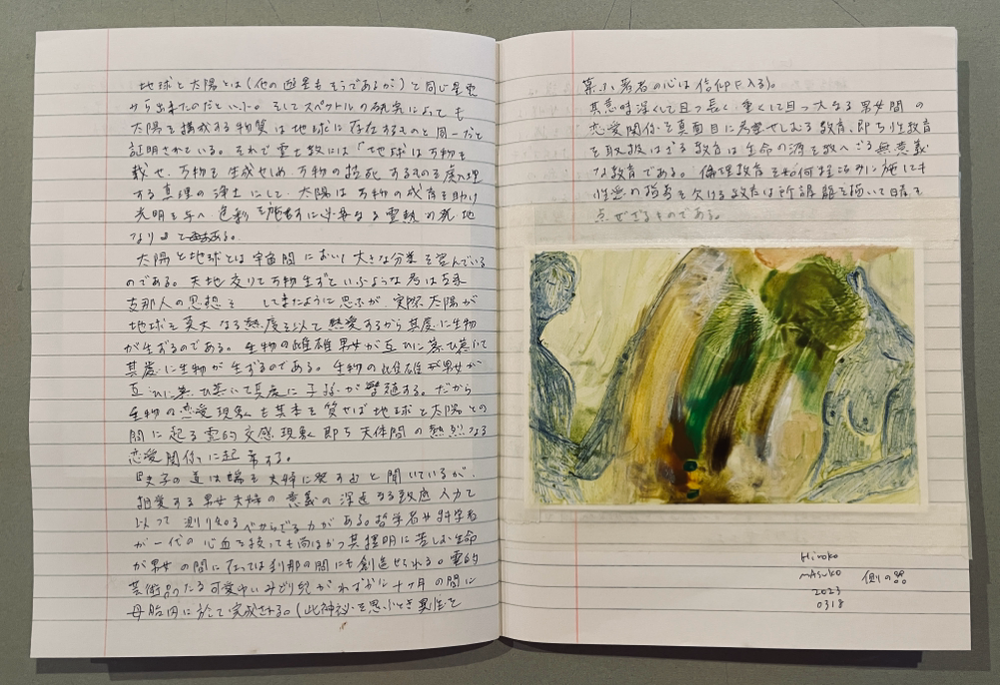 地球と太陽とは(他の遊星もそうであるが)と同じ星雲
から出来たのだといふ。そしてスペクトルの研究によっても
太陽を構成する物質は地球に存在するものと同一だと
証明されている。それで霊士教には「地球は万物を
載せ、万物を生成せしめ、万物の
する真理の浄土にして、太陽は万物の成育を助け
光明を与へ色彩を施すに必要なる霊熱の発地
なり」とある。
太陽と地球とは宇宙間において大きな分業を営んでいる
のである。天地交りて万物生ずといふような考は
支那人の思想を してきたように思ふが、実際太陽が
地球を莫大なる熱度を以て熱愛するから其處に生物
が生ずるのである。生物の雌雄男女が互ひに慕ひ慕いて
其處に生物が生ずるのである。生物の雌雄が男女が
互ひに慕ひ慕いて其處に子孫が繁殖する。だから
生物の恋愛現象も其本を質せば地球と太陽との
間に起る霊的交感現象即ち天体間の熱烈なる
恋愛関係に起帰する。
『夫子の道は端を夫婦に発す』と聞いているが、
相愛する男女夫婦の意義の深遠なる到底人力で
以って測り知るべからざる力がある。哲学者や科学者
が一代の心血を絞っても尚ほかつ其證明に苦しむ生命
が男女の間に在っては刹那の間にも創造せられる。霊的
芸術品たる可愛いみどり児がわずかに十ヶ月の間に
母胎内に於て完成される。(此神秘を思ふとき異性を
慕ふ著者の心は信仰に入る)。
其意味深くして且つ長く重くして且つ大なる男女間の
恋愛関係を真面目に考察せしむる教育、即ち性教育
を取扱はざる教育は生命の源を教へざる無意義
な教育である。倫理教育を如何程巧みに施しても
性愛の指導を欠ける教育は所謂龍を描いて目を
点ぜざるものである。
Hiroko
mAsuko 側の器
2023
0318